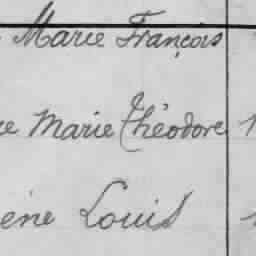 Marie François
Marie Théodore
Louis